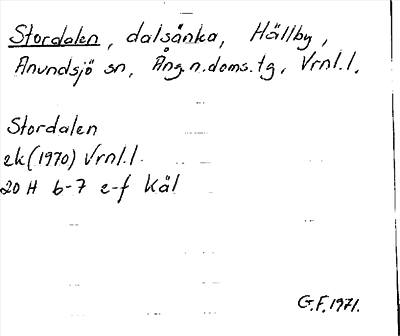 Stordalen, dalsänka, Hällby,
Anundsjö sn, Ång.n.doms.tg, Vrnl.l.
Stordalen
ek(1970) Vrnl.l.
20 H b-7 e-f Käl
G.F. 1971.